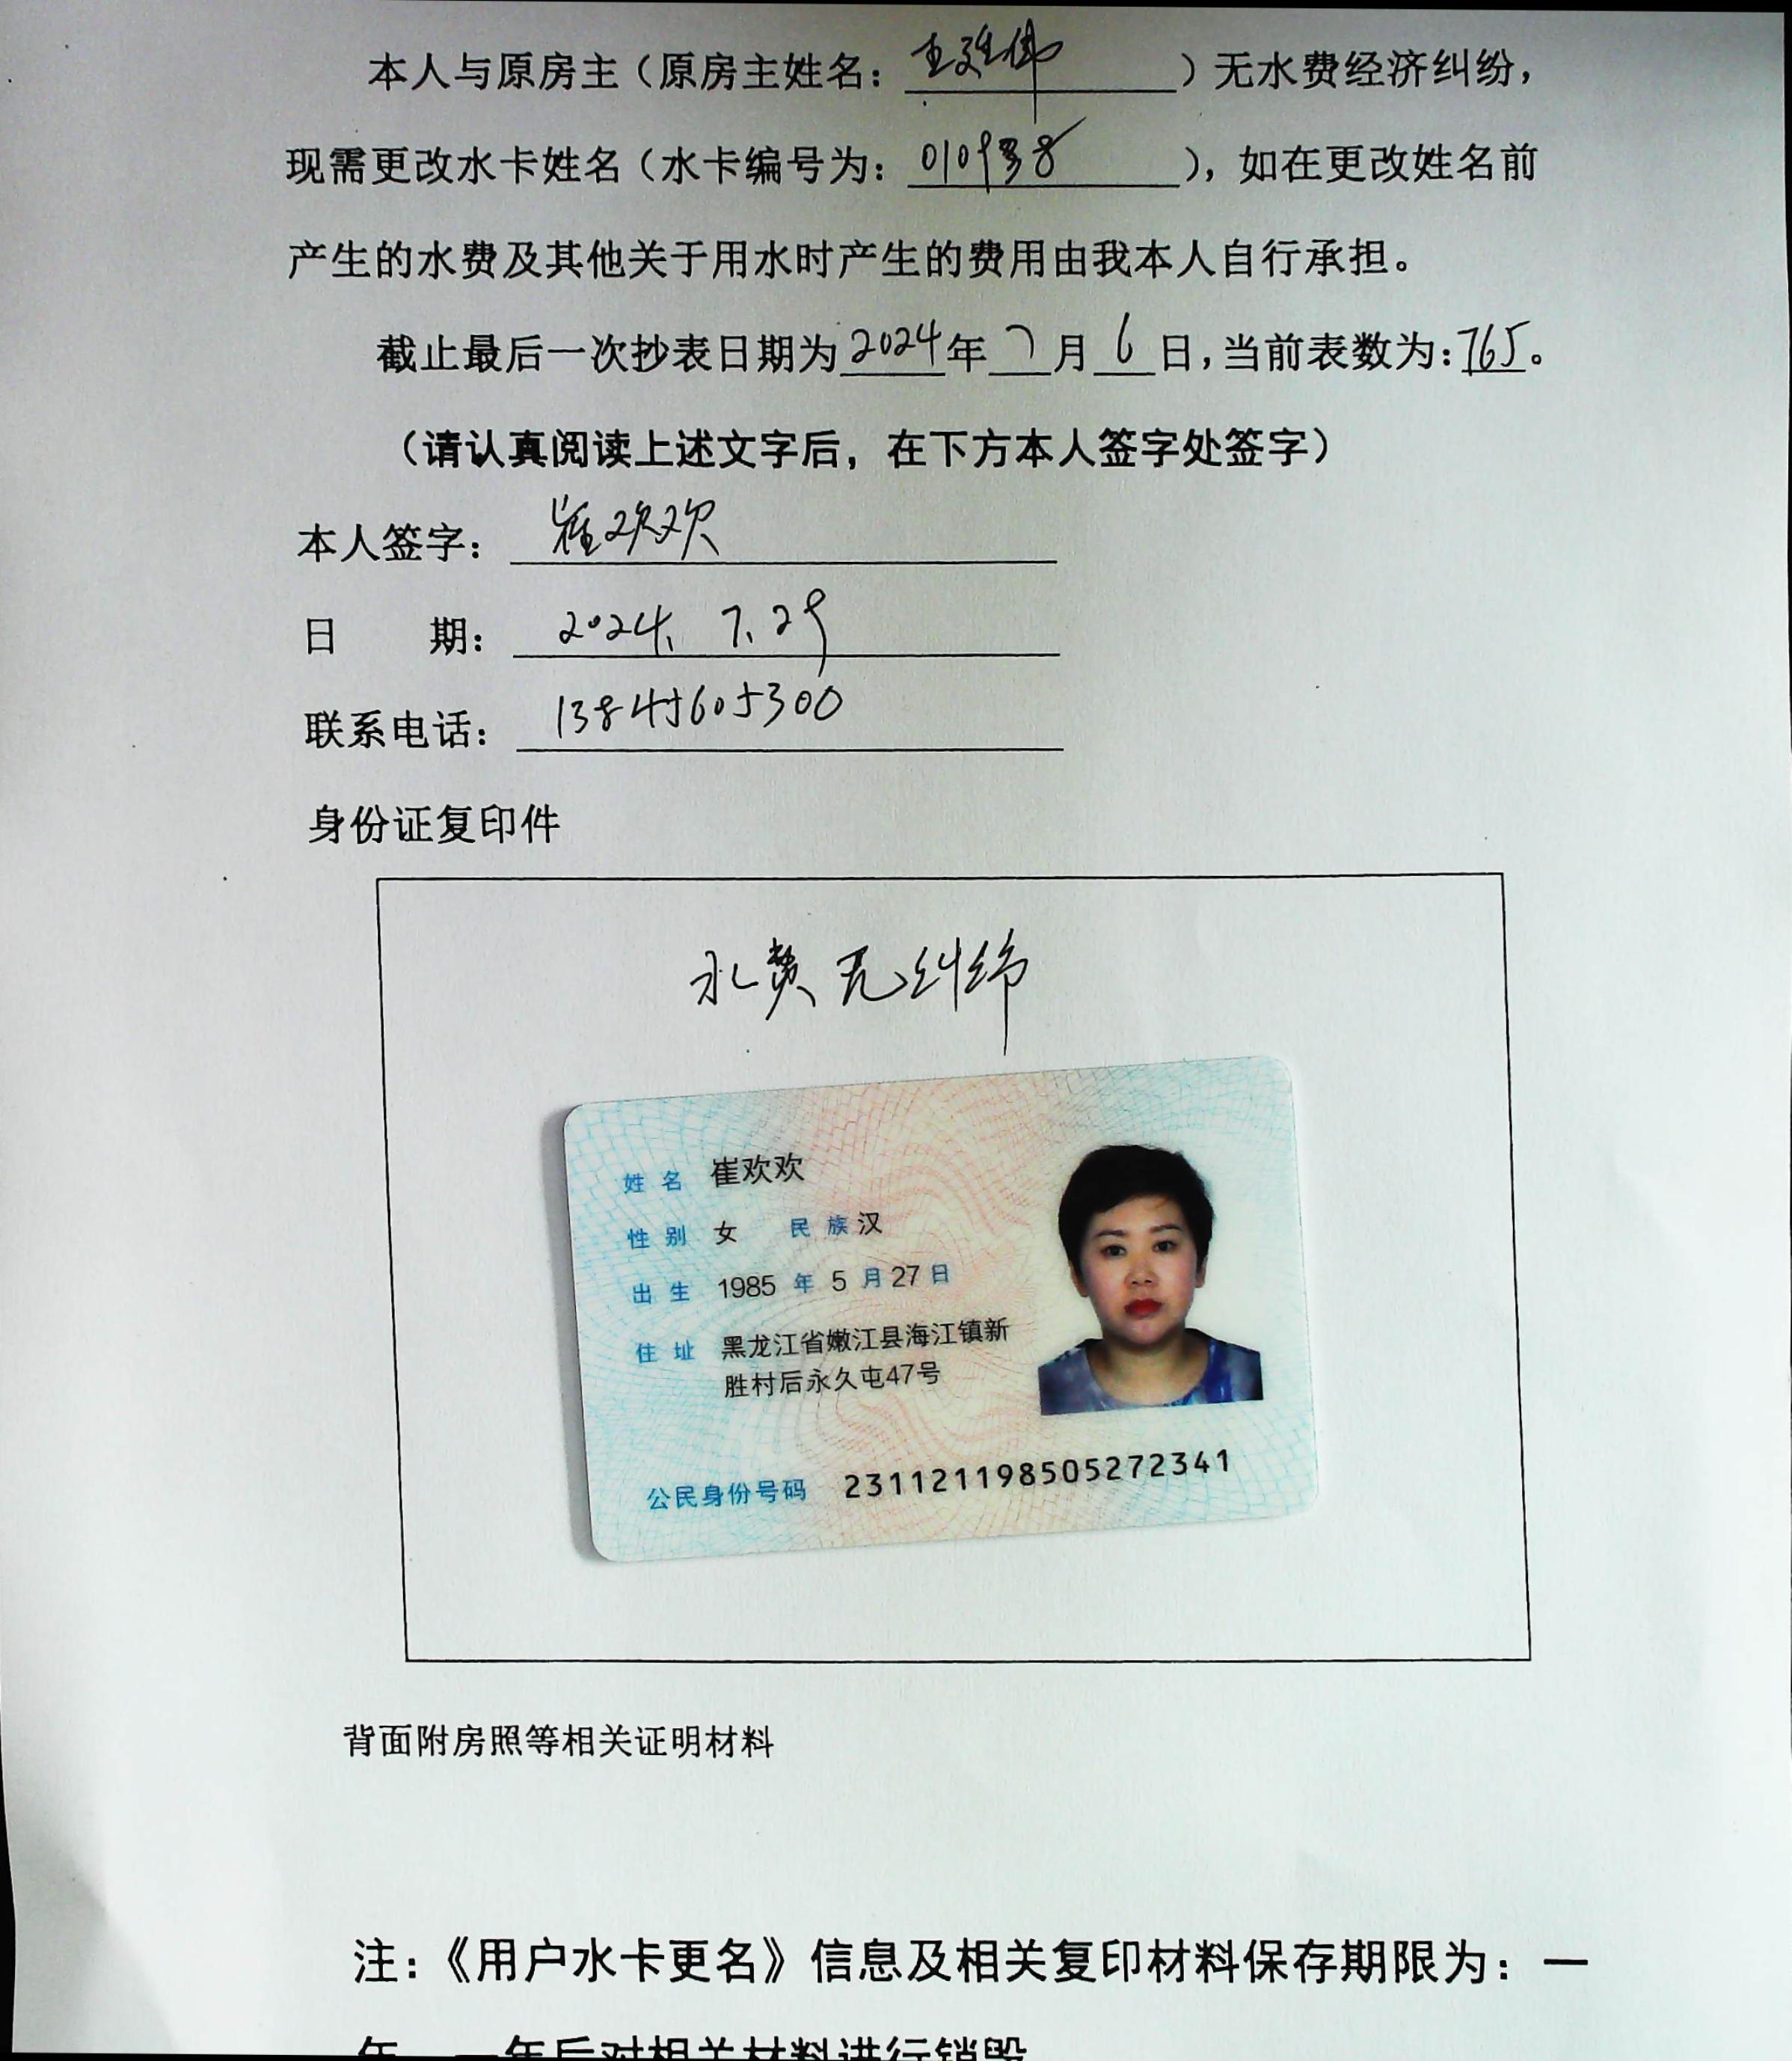 本人与原房主（原房主姓名：王延伟）无水费经济纠纷，
现需更改水卡姓名（水卡编号为：010938），如在更改姓名前
产生的水费及其他关于用水时产生的费用由我本人自行承担。
截止最后一次抄表日期为2024年7月6日，当前表数为：765。
（请认真阅读上述文字后，在下方本人签字处签字）
本人签字：崔欢欢
日期：2024.7.29
联系电话：13845605300
身份证复印件
水费无纠纷
姓名 崔欢欢
性别 女 民族 汉
出生 1985 年 5 月 27 日
住址 黑龙江省嫩江县海江镇新
胜村后永久屯47号
公民身份号码 231121198505272341
背面附房照等相关证明材料
注：《用户水卡更名》信息及相关复印材料保存期限为：一
年，一年后对相关材料进行销毁